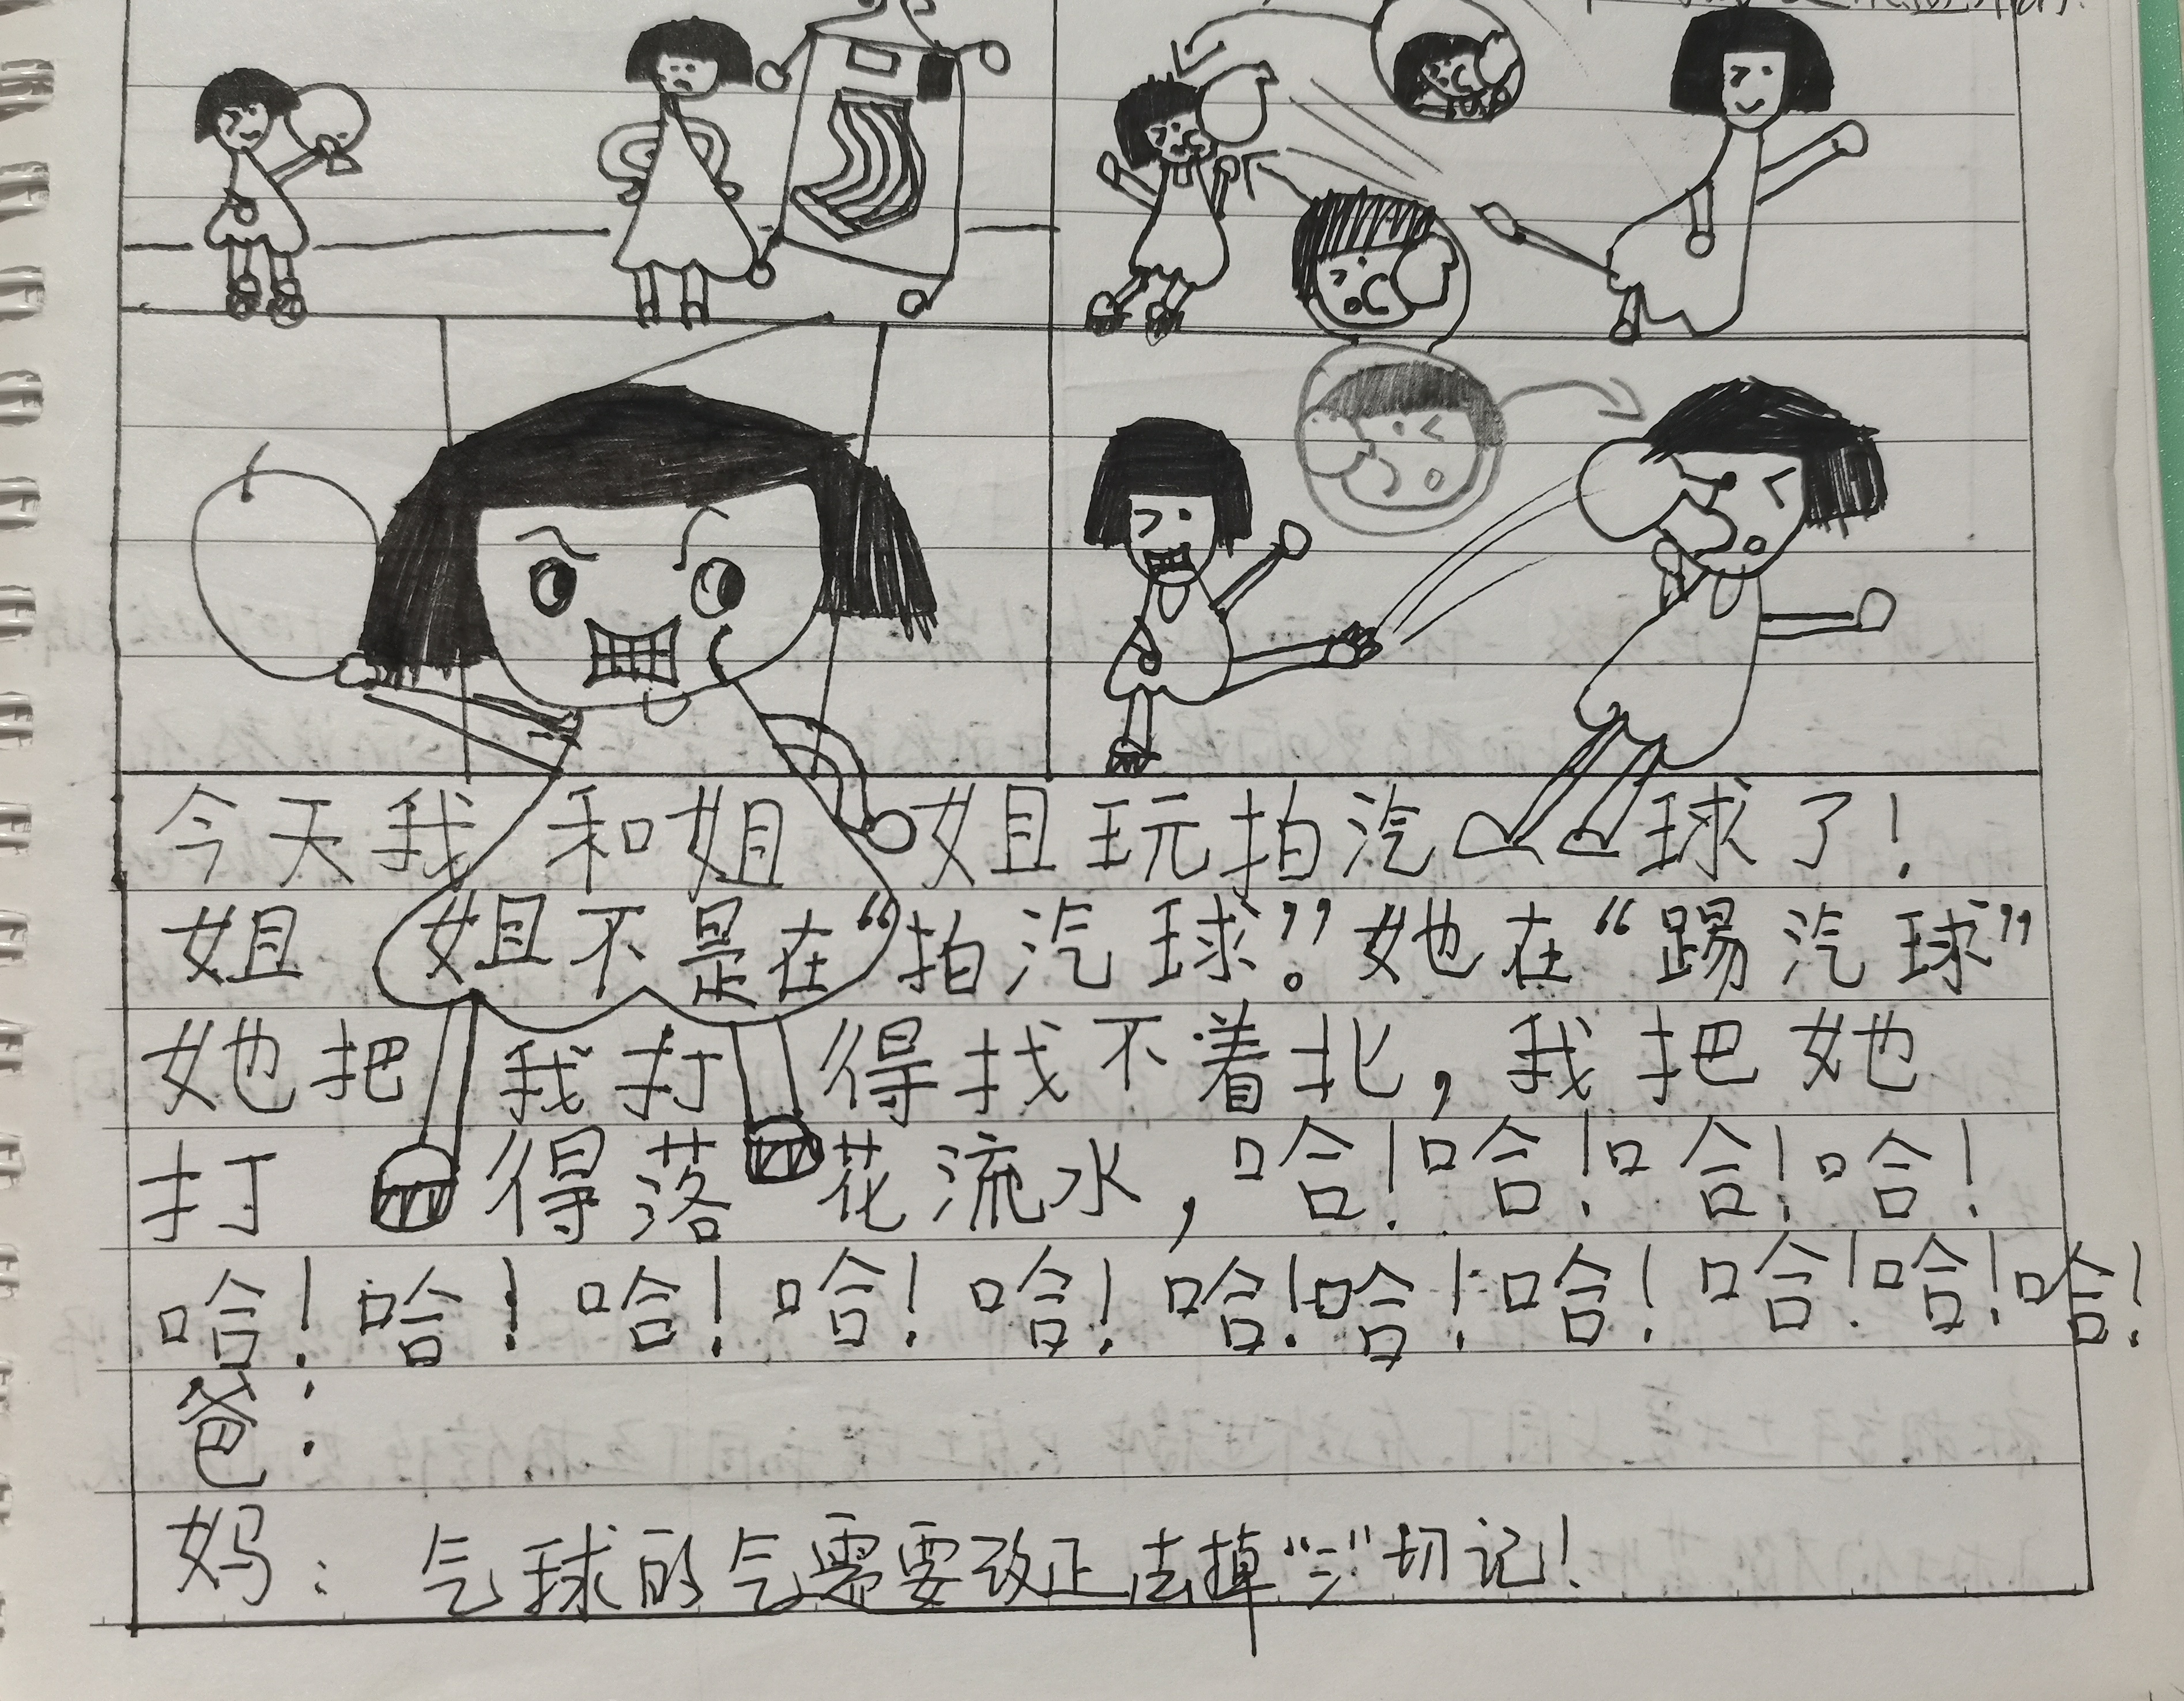 今天我和姐姐玩拍汽球了！
姐姐不是在“拍汽球”。她在“踢汽球”
她把我打得找不着北，我把她
打得落花流水，哈！哈！哈！哈！
哈！哈！哈！哈！哈！哈！哈！哈！哈！哈！哈！
爸：
妈：气球的气需要改正去掉“氵”切记！